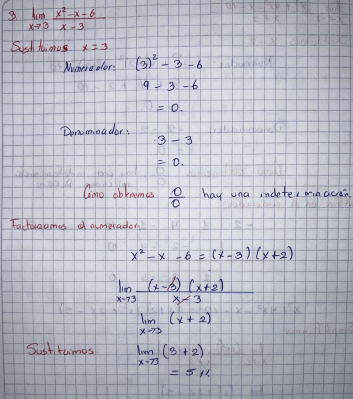 9 lim x→3 x² - x - 6 / x - 3
Sustituimos x = 3
Numerador: (3)² - 3 - 6
9 - 3 - 6
= 0.
Denominador:
3 - 3
= 0.
Como obtenemos 0/0 hay una indeterminación.
Factorizamos el numerador:
x² - x - 6 = (x - 3) (x + 2)
lim x→3 (x - 3) (x + 2) / x - 3
lim x→3 (x + 2)
Sustituimos lim x→3 (3 + 2)
= 5 //.